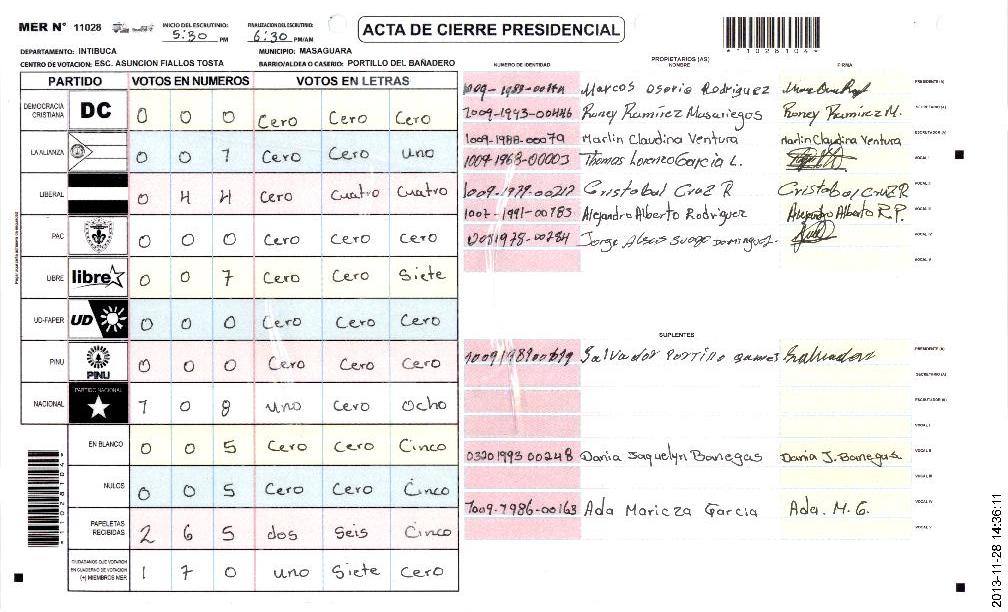 MER N° 11028
INICIO DEL ESCRUTINIO: 5:30 PM
FINALIZACION DEL ESCRUTINIO: 6:30 PM/AM
ACTA DE CIERRE PRESIDENCIAL
*11028104*
DEPARTAMENTO: INTIBUCA MUNICIPIO: MASAGUARA
CENTRO DE VOTACION: ESC. ASUNCION FIALLOS TOSTA BARRIO/ALDEA O CASERIO: PORTILLO DEL BAÑADERO
PARTIDO VOTOS EN NUMEROS VOTOS EN LETRAS
DEMOCRACIA CRISTIANA DC 0 0 0 Cero Cero Cero
LA ALIANZA 0 0 1 Cero Cero uno
LIBERAL 0 4 4 Cero Cuatro Cuatro
PAC 0 0 0 Cero Cero Cero
LIBRE libre 0 0 7 Cero Cero Siete
UD-FAPER UD 0 0 0 Cero Cero Cero
PINU PINU 0 0 0 Cero Cero Cero
NACIONAL PARTIDO NACIONAL 1 0 8 uno Cero Ocho
EN BLANCO 0 0 5 Cero Cero Cinco
NULOS 0 0 5 Cero Cero Cinco
PAPELETAS RECIBIDAS 2 6 5 dos Seis Cinco
CIUDADANOS QUE VOTARON EN CUADERNO DE VOTACION (+) MIEMBROS MER 1 7 0 uno Siete Cero
PROPIETARIOS (AS)
NUMERO DE IDENTIDAD NOMBRE FIRMA
Marcos Osorio Rodriguez PRESIDENTE (A)
Roney Ramirez Masariegos Roney Ramirez M. SECRETARIO (A)
1009-1988-00079 Marlin Claudina Ventura Marlin Claudina Ventura ESCRUTADOR (A)
1009-1968-00003 Thomas Lorenzo Garcia L. VOCAL I
1009-1979-00212 Cristobal Cruz R Cristobal Cruz R VOCAL II
1007-1991-00783 Alejandro Alberto Rodriguez Alejandro Alberto R.P. VOCAL III
Jorge VOCAL IV
VOCAL V
SUPLENTES
Salvador Salvador PRESIDENTE (A)
SECRETARIO (A)
ESCRUTADOR (A)
VOCAL I
0320 1993 00248 Dania Jaquelyn Banegas Dania J. Banegas VOCAL II
VOCAL III
1009-1986-00163 Ada Maricza Garcia Ada. M. G. VOCAL IV
VOCAL V
2013-11-28 14:36:11